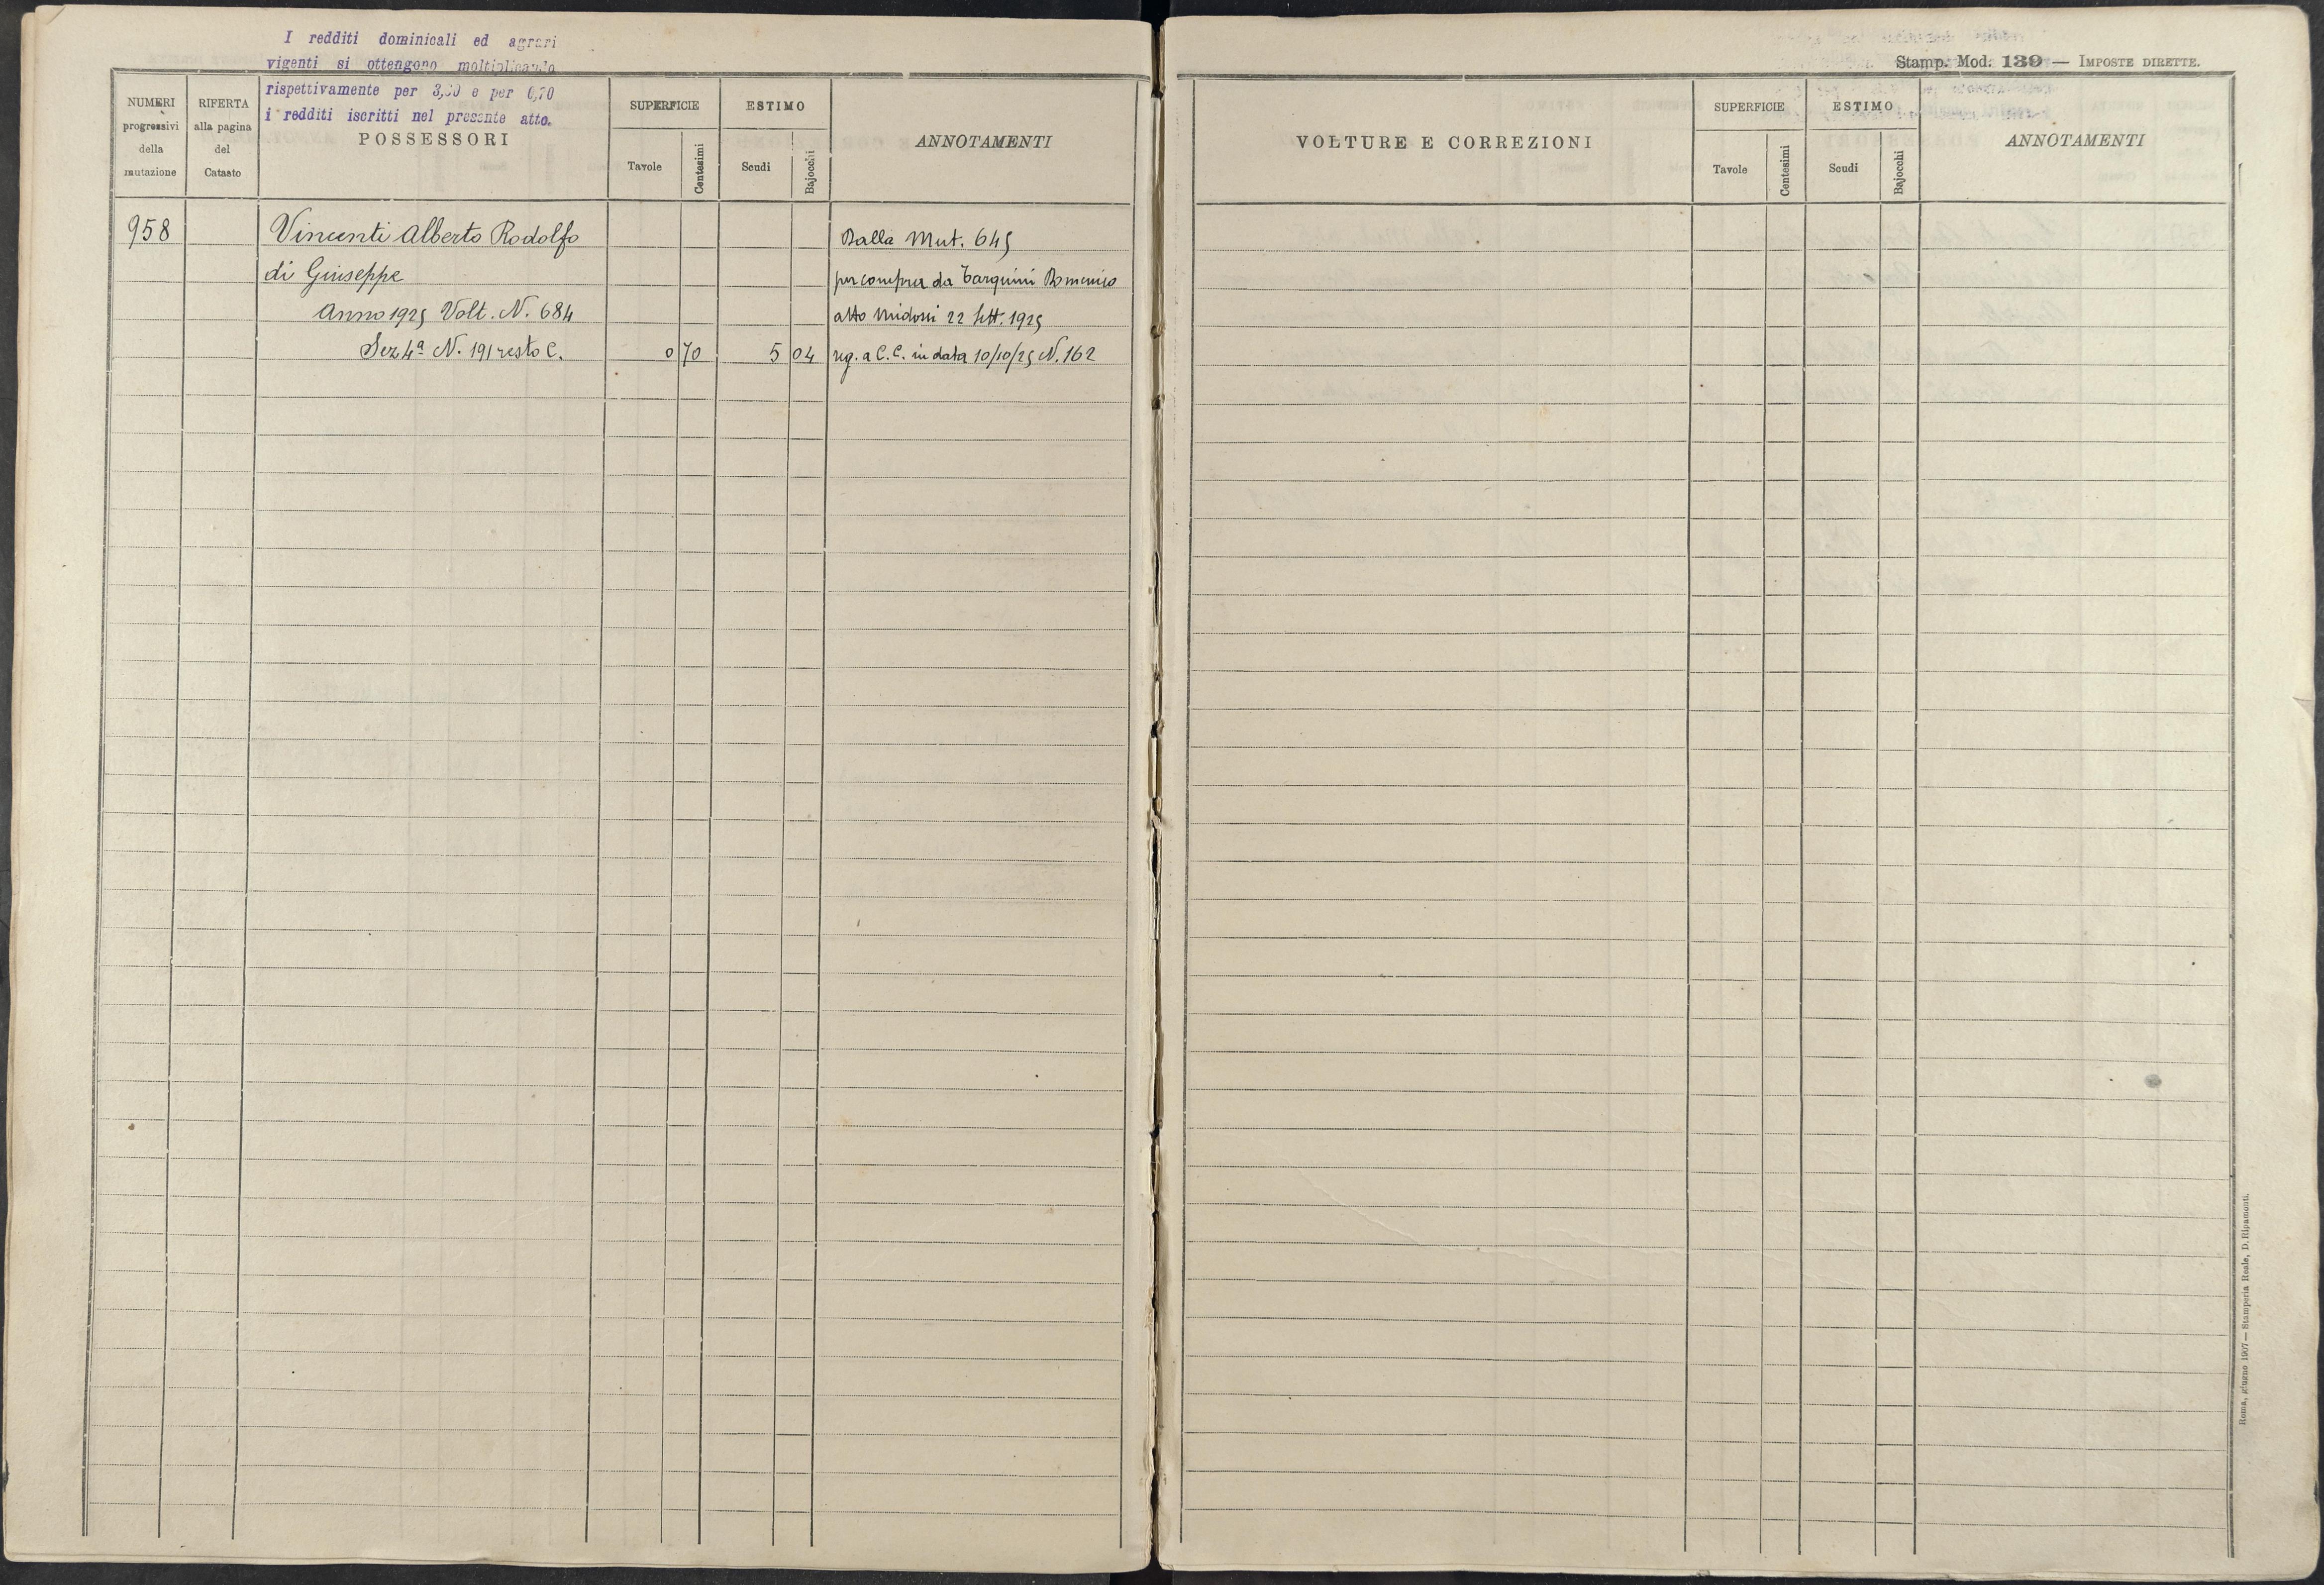 I redditi dominicali ed agrari
vigenti si ottengono moltiplicando
rispettivamente per 3,50 e per 0,70
i redditi iscritti nel presente atto.
NUMERI progressivi della mutazione
RIFERTA alla pagina del Catasto
POSSESSORI
SUPERFICIE
Tavole Centesimi
ESTIMO
Scudi Bajocchi
ANNOTAMENTI
958 Vincenti Alberto Rodolfo Dalla Mut. 645
di Giuseppe per compra da Tarquini Domenico
Anno 1925 Volt. N. 684 atto Midossi 22 Sett. 1925
Sez 4ª N. 191 resto C. 0 70 5 04 reg. a C.C. in data 10/10/25 N. 162
Stamp. Mod. 139 — IMPOSTE DIRETTE.
VOLTURE E CORREZIONI
SUPERFICIE
Tavole Centesimi
ESTIMO
Scudi Bajocchi
ANNOTAMENTI
Roma, giugno 1907 — Stamperia Reale, D. Ripamonti.